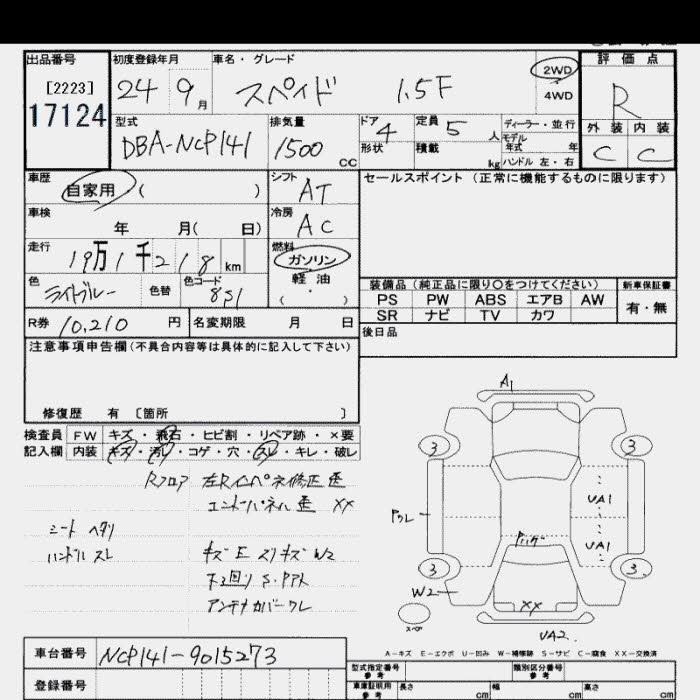 出品番号 初度登録年月 車名・グレード 評価点
[2223] 24 9月 スペイド 1.5F 2WD R
17124 4WD
型式 排気量 ドア 4 定員 5人 ディーラー・並行 外装 内装
DBA-NCP141 1500cc 形状 積載 kg モデル年式 年 C C
ハンドル 左・右
車歴 自家用 ( ) シフト AT セールスポイント (正常に機能するものに限ります)
車検 年 月( 日) 冷房 AC
走行 19万1千218km 燃料 ガソリン
色 ライトブルー 色替 色コード 8S1 軽油 ( ・ )
装備品 (純正品に限り〇をつけてください) 新車保証書
PS PW ABS エアB AW 有・無
SR ナビ TV カワ
R券 10,210円 名変期限 月 日 後日品
注意事項申告欄(不具合内容等は具体的に記入して下さい)
修復歴 有 〔箇所 〕
検査員 FW キズ・飛石・ヒビ割・リペア跡・×要
記入欄 内装 キズ・汚レ・コゲ・穴・スレ・キレ・破レ
Rフロア 左Rインパネ修正歪
エンドパネル歪 XX
シート ヘタリ
ハンドル スレ キズE スリキズ W2
下回りS・Pアト
アンテナカバーワレ
A1
3 3
PクレーUA1
UA1
3 3
W2 XX
スペア UA2.
A-キズ E-エクボ U-凹み W-補修跡 S-サビ C-腐食 XX-交換済
車台番号 NCP141-9015273
登録番号
型式指定番号 参考 類別区分番号 参考
車庫証明用 参考 長さ cm 幅 cm 高さ cm